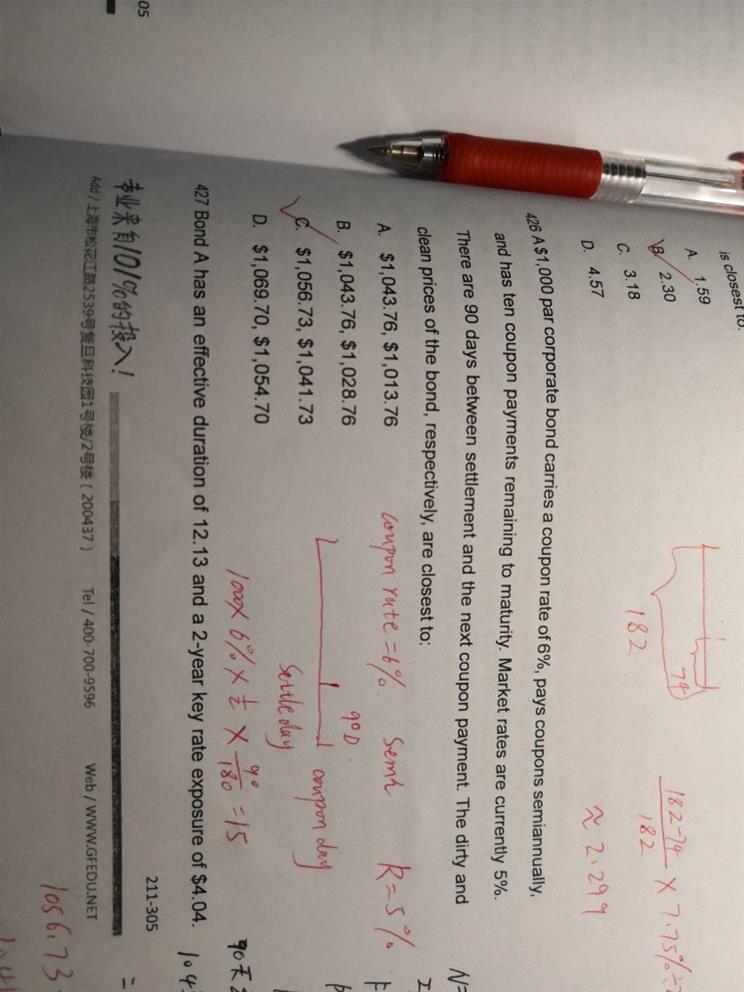 is closest to:
A. 1.59
B. 2.30
C. 3.18
D. 4.57
74
182
182-74
182
× 7.75%÷
≈ 2.299
426 A $1,000 par corporate bond carries a coupon rate of 6%, pays coupons semiannually,
and has ten coupon payments remaining to maturity. Market rates are currently 5%.
There are 90 days between settlement and the next coupon payment. The dirty and
clean prices of the bond, respectively, are closest to:
A. $1,043.76, $1,013.76
B. $1,043.76, $1,028.76
C. $1,056.73, $1,041.73
D. $1,069.70, $1,054.70
coupon rate=6% R=5%
90D.
settle day
coupon day
1000× 6% × 1/2 × 90/180 = 15
N=
427 Bond A has an effective duration of 12.13 and a 2-year key rate exposure of $4.04.
90天
104
211-305
专业来自101%的投入!
Add / 上海市松花江路2539号复旦科技园1号楼/2号楼 ( 200437 ) Tel / 400-700-9596 Web / WWW.GFEDU.NET
1056.73
05